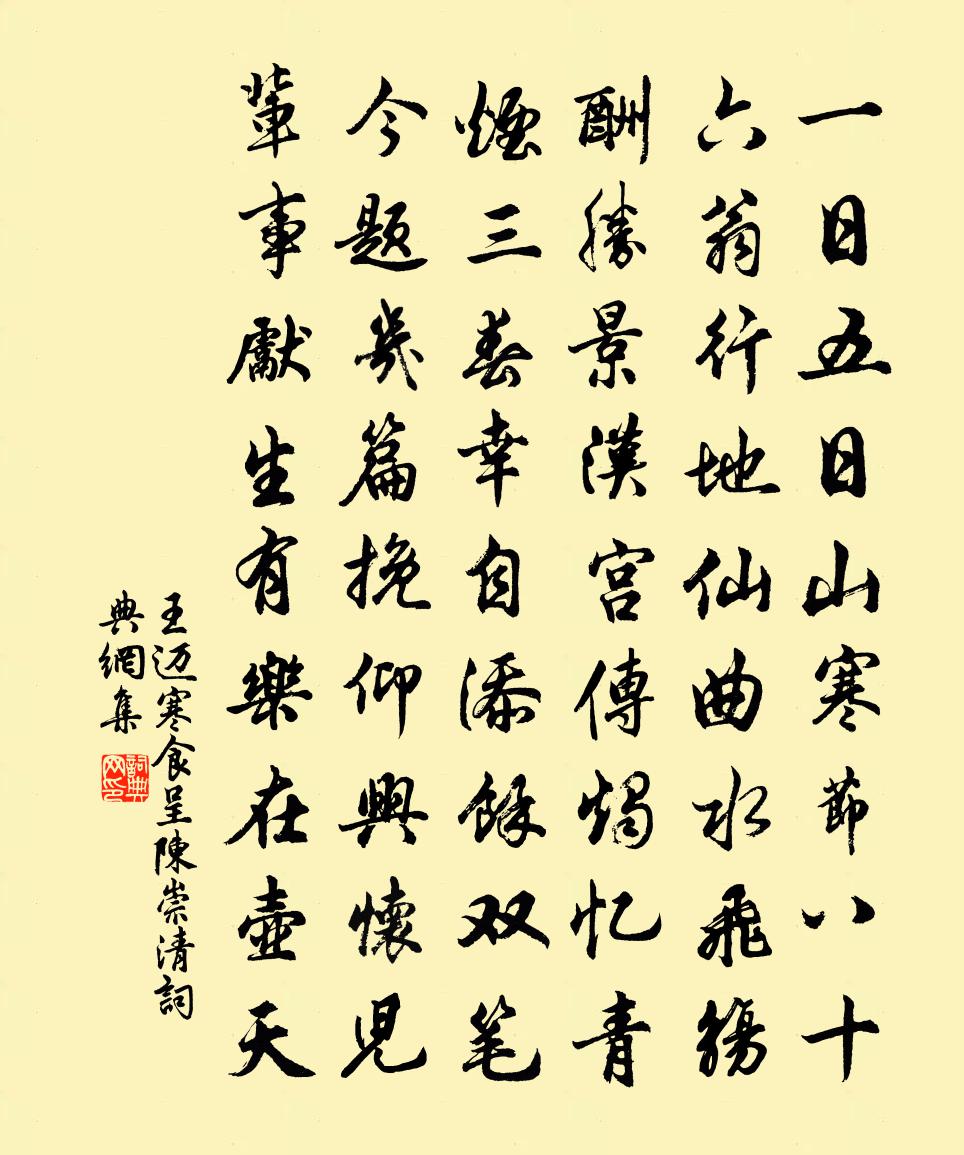 一日五日山寒節八十
六翁行地仙曲水飛觴
酬勝景漢宮傳燭忆青
煙三春幸自添餘双笔
今題幾篇挽仰興懷児
輩事獻生有樂在壺天
王迈寒食呈陳崇清詞
典網集
詞典网印